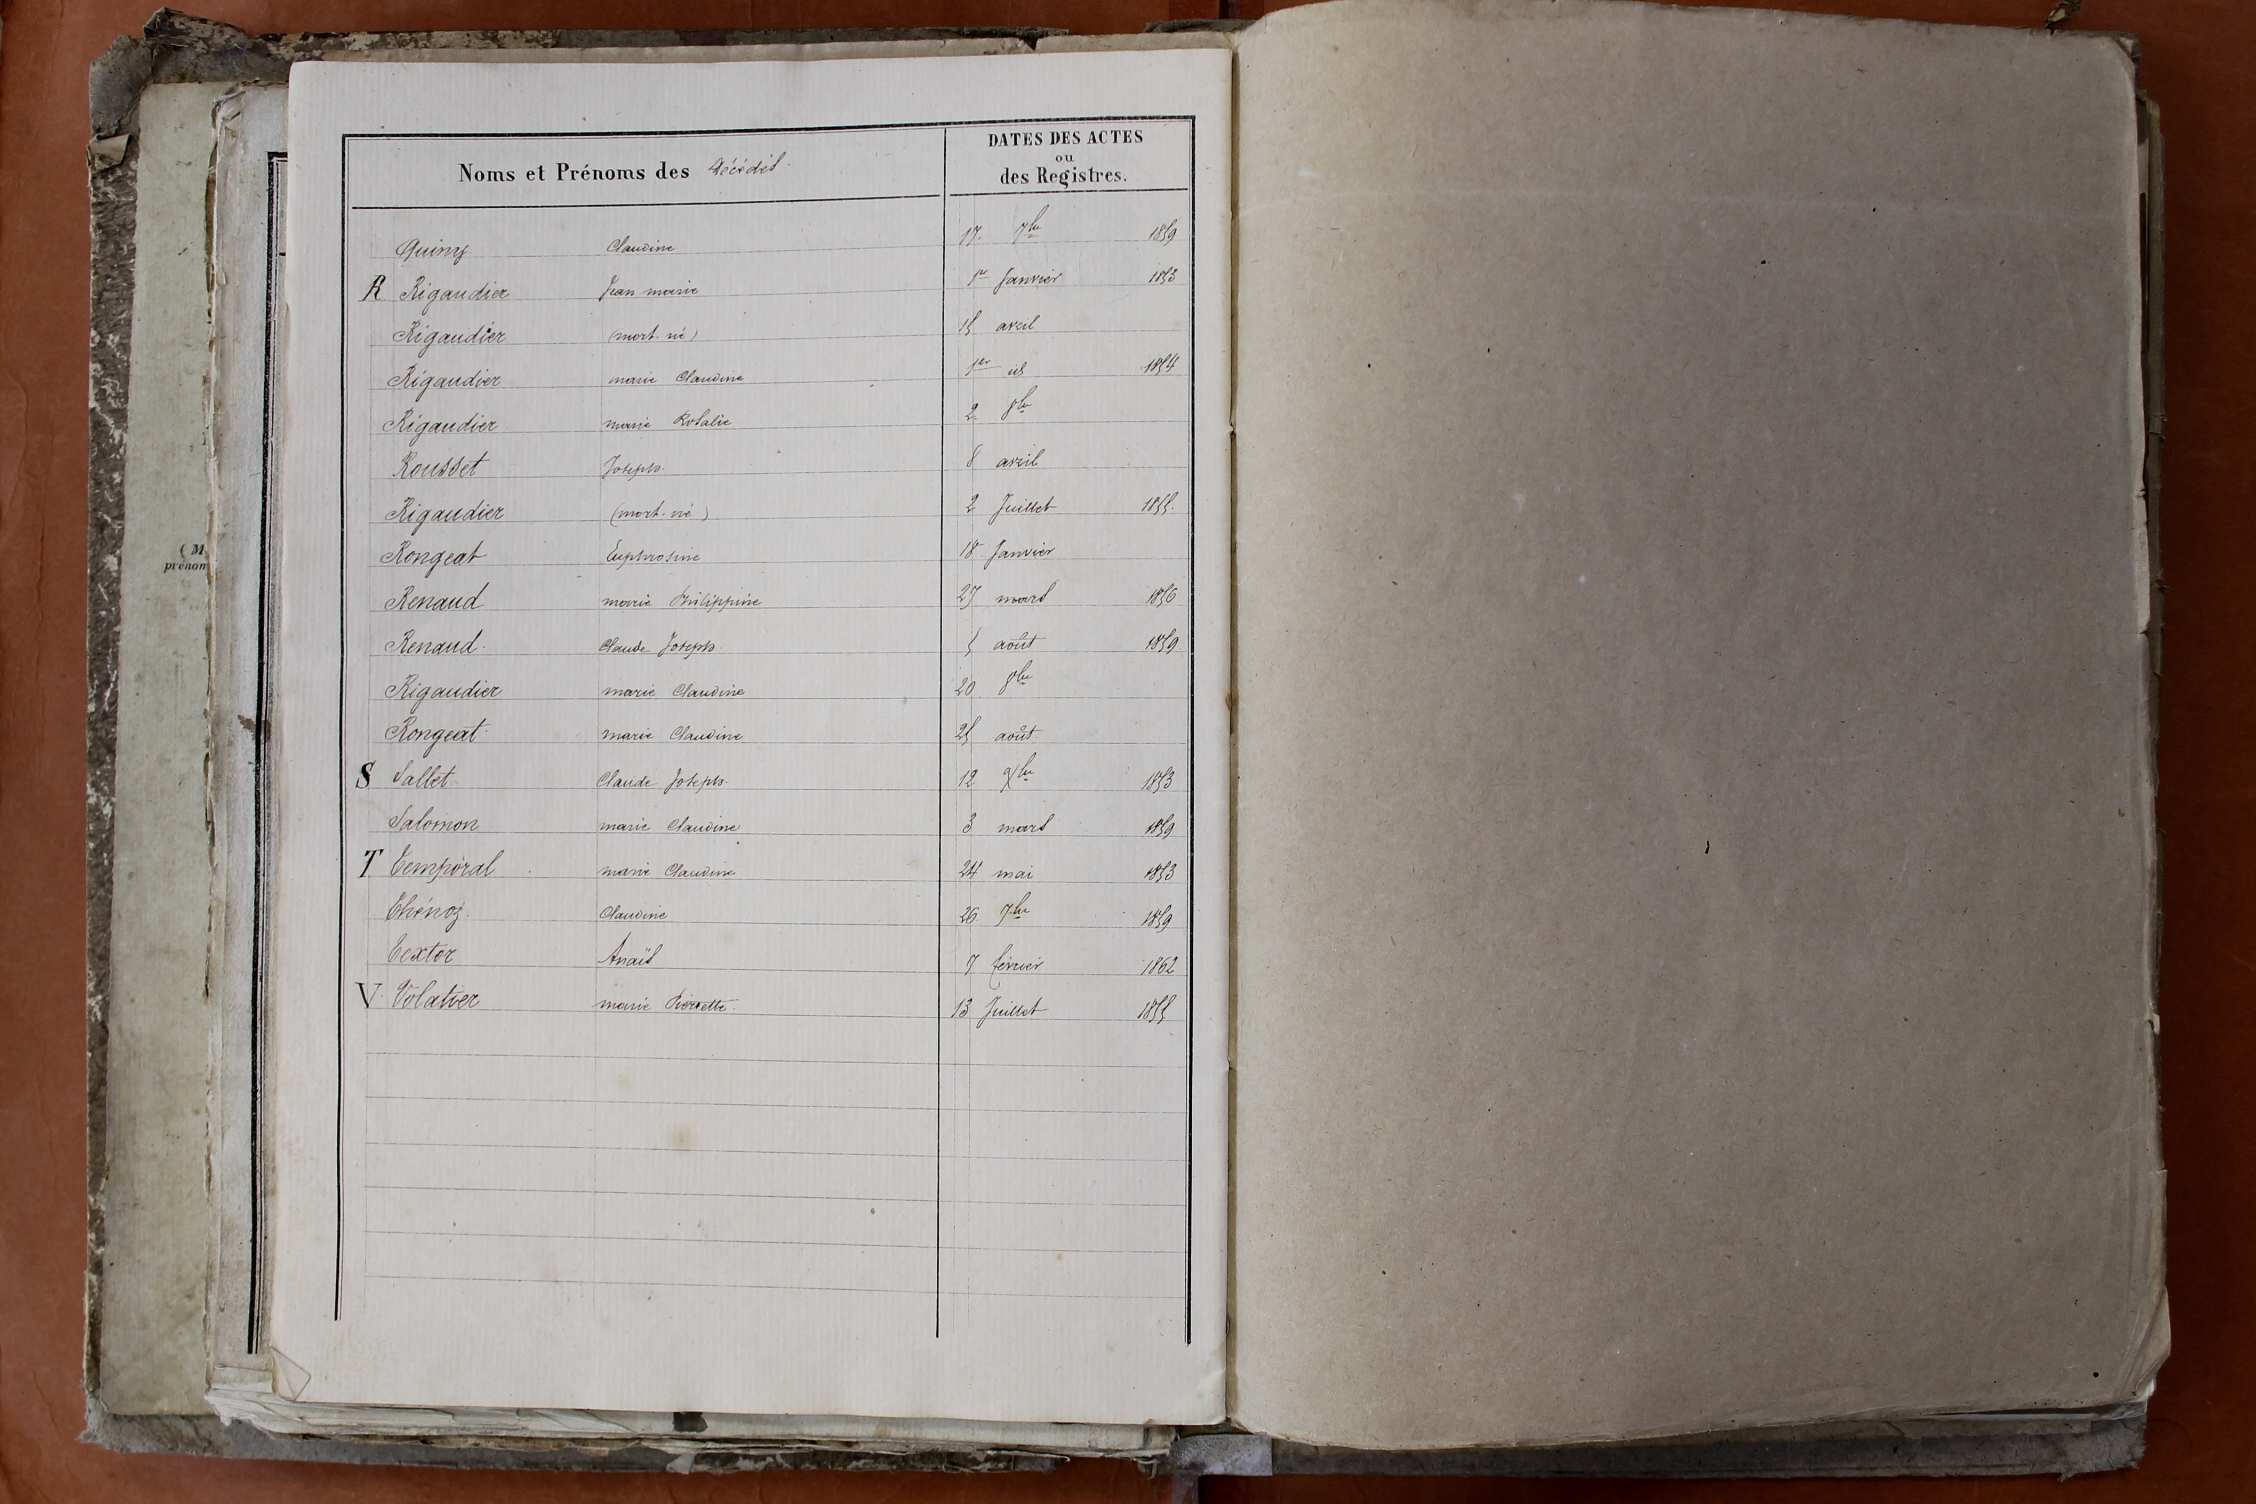 Noms et Prénoms des Décédés
DATES DES ACTES
ou
des Registres.
Quiny Claudine 17 7bre 1859
R Rigaudier Jean marie 1er Janvier 1853
Rigaudier (mort-né) 15 avril
Rigaudier marie Claudine 1er id 1854
Rigaudier marie Rosalie 2 8bre
Rousset Joseph 8 avril
Rigaudier (mort-né) 2 Juillet 1855
Rongeat Euphrosine 18 Janvier
Renaud marie Philippine 27 mars 1856
Renaud Claude Joseph 5 août 1859
Rigaudier marie Claudine 20 8bre
Rongeat marie Claudine 25 août
S Sallet Claude Joseph 12 Xbre 1853
Salomon marie Claudine 3 mars 1859
T Temporal marie Claudine 24 mai 1853
Thénoz Claudine 26 7bre 1859
Textor Anaïs 7 février 1862
V Volatier marie Pierrette 13 Juillet 1855
(M
prénom